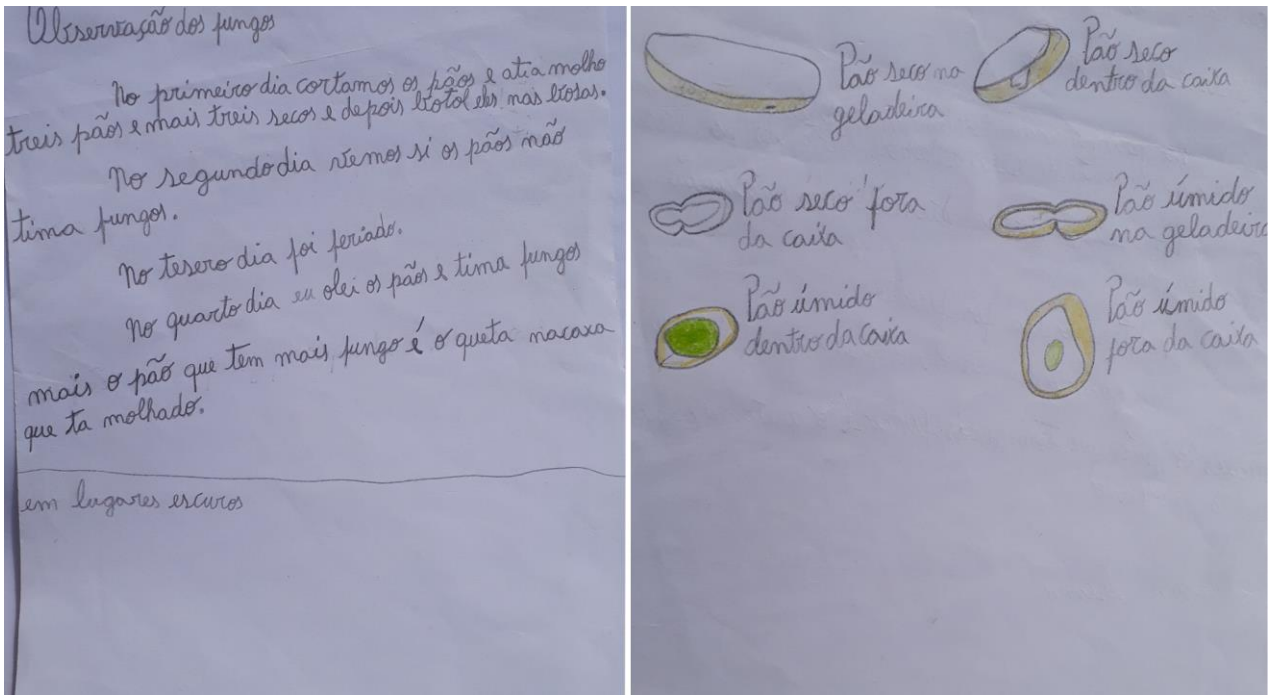 Observação dos fungos
No primeiro dia cortamos os pãos e atia molho
treis pãos e mais treis secos e depois botol eles nas
No segundo dia vemos si os pãos não
tima fungos.
No tesero dia foi feriado.
No quarto dia eu olei os pãos e tima fungos
mais o pão que tem mais fungo é o queta nacaxa
que ta molhado.
em lugares escuros
Pão seco na
geladeira
Pão seco
dentro da caixa
Pão seco fora
da caixa
Pão úmido
na geladeira
Pão úmido
dentro da caixa
Pão úmido
fora da caixa